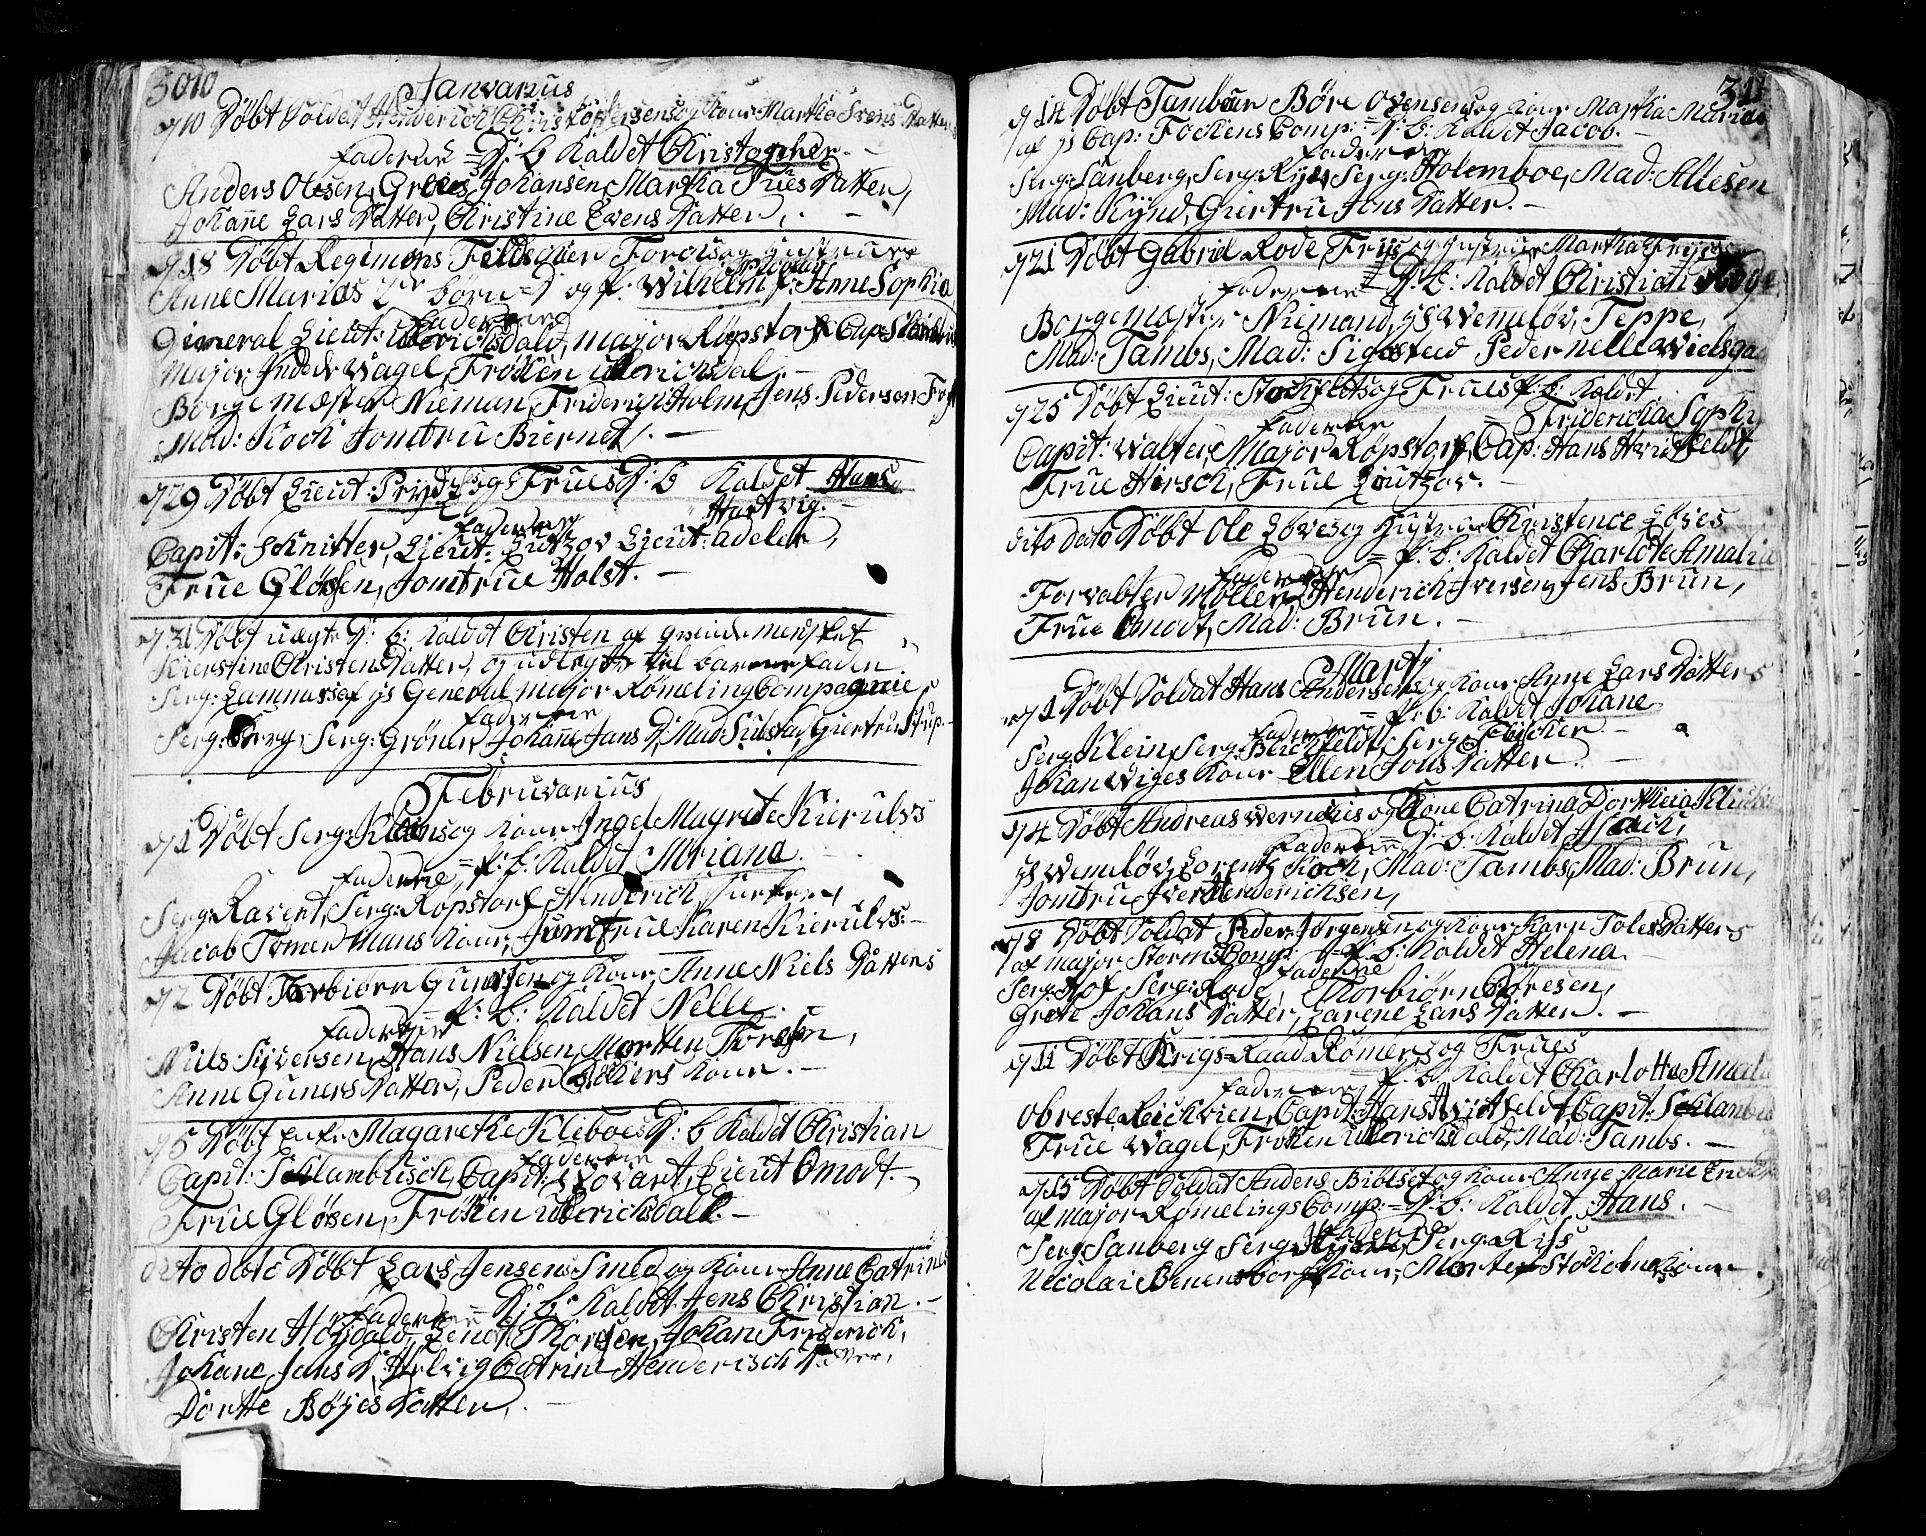 3010 Janvarius
d 10 Døbt Soldat Henderich Christophersens og Kone Martha Svens Datters
faderne = D: b Kaldet Christopher. -
Anders Olesen, Johansen, Martha Datter,
Johane Lars Datter, Christine Evens Datter, . -
d 18 Døbt Regiments Feldscher og Hustrue
Anne Marias 2de børn = D og P: Wilhelm, P: Anne Sophia
fadderne
General Lieut: Ulerichsdald, major Røpstorf, Cap:
Major Frue Wagel, Frøken Ulerichsdal, -
Borgemæster Nieman, Friderich Holm, Jens Pedersen
Mad: Koch Jomfru Biernet. -
d 29 Døbt Lieut: Prydz og Frues D: b Kaldet Hans
Hartvig. -
fadderne
Capit: Schnitter, Lieut: Lutzov Lieut: adeler,
Frue Gløsen, Jomfrue Holst. -
d 31 Døbt uægte D: b: Kaldet Christen af qvindemensket
Kierstine Christens Datter, og udlagte til barnefader
Serg: af General major Rømeling Compagnie
fadderne
Serg: Berg, Serg: Grøner, Johane Jans D: Mad: Giertru Stup. -
Februvarius
d 1 Døbt Serg: Kleins og Kone Ingel Magrete Kierulvs
fadderne = P: b: Kaldet Moriana.
Serg: Ravert, Serg: Ropstorf, Henderich
Jacob Tømer Mans Kone, Jomfrue Karen Kierulvs. -
d 2 Døbt Torbiørn Gunersen og Kone Anne Niels Datters
= P: b: Kaldet Nelle.
fadderne
Niels Siversen, Hans Nielsen, Morten Toresen,
Anne Guners Datter, Peder Kone. -
d 5 Døbt Enke Magarethe Kleboes D: b Kaldet Christian
fadderne
Capit: Schlambusch, Capit: Wovart, Lieut Omodt. -
Frue Gløsen, Frøken Ulerichsdall. -
dito dato Døbt Lars Jensens Smed og Kone Anne Catrines
fadderne = D: b: Kaldet Jens Christian. -
Christen Høgdald, Johan Friderich,
Johane Jans D: Helvig Catrine Henderisch Datter,
Dorthe Bøyes Datter, . -
311
d 14 Døbt Tambur Børe Ovensens og Kone Martha Marias
af Cap: Fockens Comp: = D: b: Kaldet Jacob. -
fadderne
Serg: Sanberg, Serg: Ryes, Serg: Holemboe, Mad: Altesen
Mad: Kynd, Giertru Jons Datter. -
d 21 Døbt Gabriel Rode Friis og Hustrue Martha Friises
fadderne = D: b: Kaldet Christian
Borgemæster Niemand, Hr Wemeløv, Teppe,
Mad: Tambs, Mad: Sigested Pedernelle Wielsgaa
d 25 Døbt Lieut: Stockfletz og Frues P: b: Kaldet
fadderne - Friderichia Sophi
Capit: Walter, Major Røpstorf, Cap: Hans Hvietfeldt,
Frue Hirsch, Frue Løutzov. -
dito dato Døbt Ole Løvese og Hustrue Christence Løves
fadderne = P: b: Kaldet Charlote Amalia
Forvalter Møller, Henderich Iversen, Jens Brun,
Frue Omodt, Mad: Brun. -
Martj
d 1 Døbt Soldat Hans Andersens og Kone Anne Lars Datters
fadderne = P: b: Kaldet Johane
Serg: Klein, Serg: Blichfeldt, Serg:
Johan Wiges Kone Ellen Jons Datter. -
d 4 Døbt Andreas Wernckis og Kone Catrina Dorthea
fadderne D: b: Kaldet Isach,
Hr Wemeløv, Lorentz Koch, Mad: Tambs, Mad: Brun,
Jomfru Iver Henderichsen,
d 8 Døbt Soldat Peder Jørgensen og Kone Karn Toles Datters
af major Storms Comp: = P: b: Kaldet Helena. -
fadderne
Serg: Hof, Serg: Rode, Thorbiørn Børesen,
Grete Johans Datter, Larene Lars Datter. -
d 11 Døbt Krigs=Raad Rømers og Frues
fadderne = P: b: Kaldet Charlotta Amalia
Obreste Reichvien, Capit: Hans Hvietfeldt, Capit: Schlambu
Frue Wagel, Frøken Ulerichsdald, Mad: Tambs. -
d 15 Døbt Soldat Anders Biølset og Kone Anne Marie
af major Rømelings Comp: = D: b: Kaldet Hans. -
fadderne
Serg: Sanberg Serg: Serg: Riss
Necolai Benensborgs Kone, Morten Stokholms Kone.